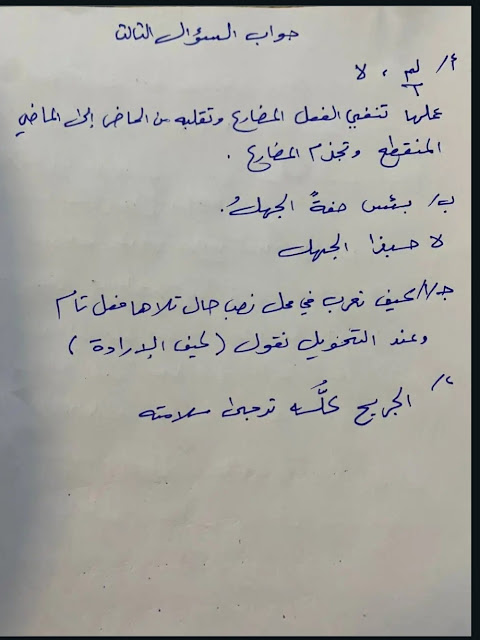 جواب السؤال الثالث
أ/ لم ، لا
عملها تنفي الفعل المضارع وتقلبه من الحاضر إلى الماضي
المنقطع وتجزم المضارع .
ب/ بئس صفةً الجهلُ.
لا حبذا الجهل
جـ/١/ كيف تعرب في محل نصب حال تلاها فعل تام
وعند التحويل نقول ( كيف الإرادة )
٢/ الجريح علَّه ترجى سلامته